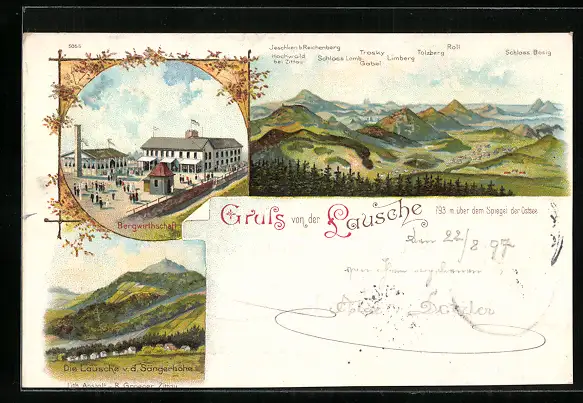 5065
Jeschken b Reichenberg
Hochwald bei Zittau
Schloss Lemb.
Trosky
Gabel
Limberg
Tolzberg
Roll
Schloss Bösig
Bergwirthschaft
Gruss von der Lausche
793 m über dem Spiegel der Ostsee
Den 22/8 97
Die Lausche v. d. Sängerhöhe
Lith. Anstalt v. R. Groeger, Zittau